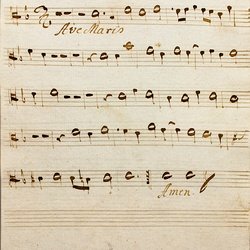 Ave Maris
Amen.